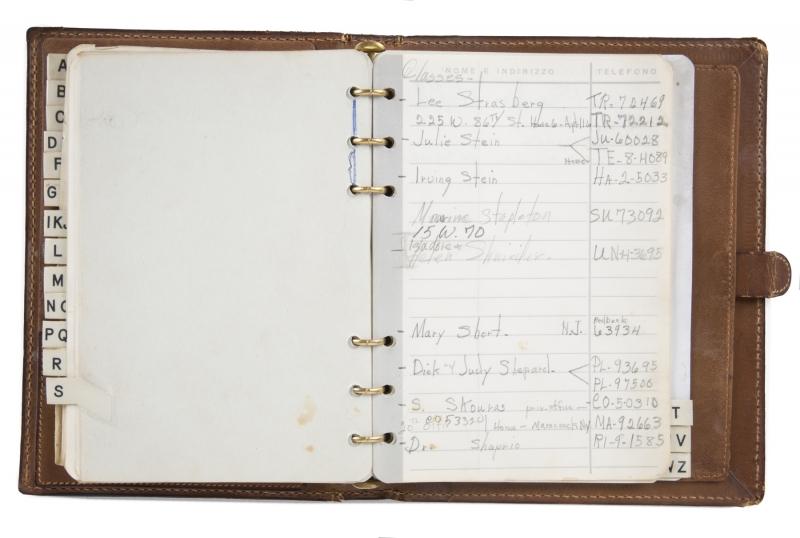 A
B
C
D
F
G
IKJ
L
M
NO
PQ
R
S
NOME E INDIRIZZO TELEFONO
Classes-
Lee Strasberg TR-72469
225 W. 86th St. TR-72212
Julie Stein JU-60028
Home TE-8-4089
Irving Stein HA-2-5033
Maurine Stapleton SU73092
15 W. 70
Helen UN4-3695
Mary Short. N.J. 63934
Dick + Judy Shepard. PL-93695
PL-97500
S. Skouras priv. office - CO-5-0310
Home - MA-92663
Dr. Shapiro RI-9-1585
T
V
WZ